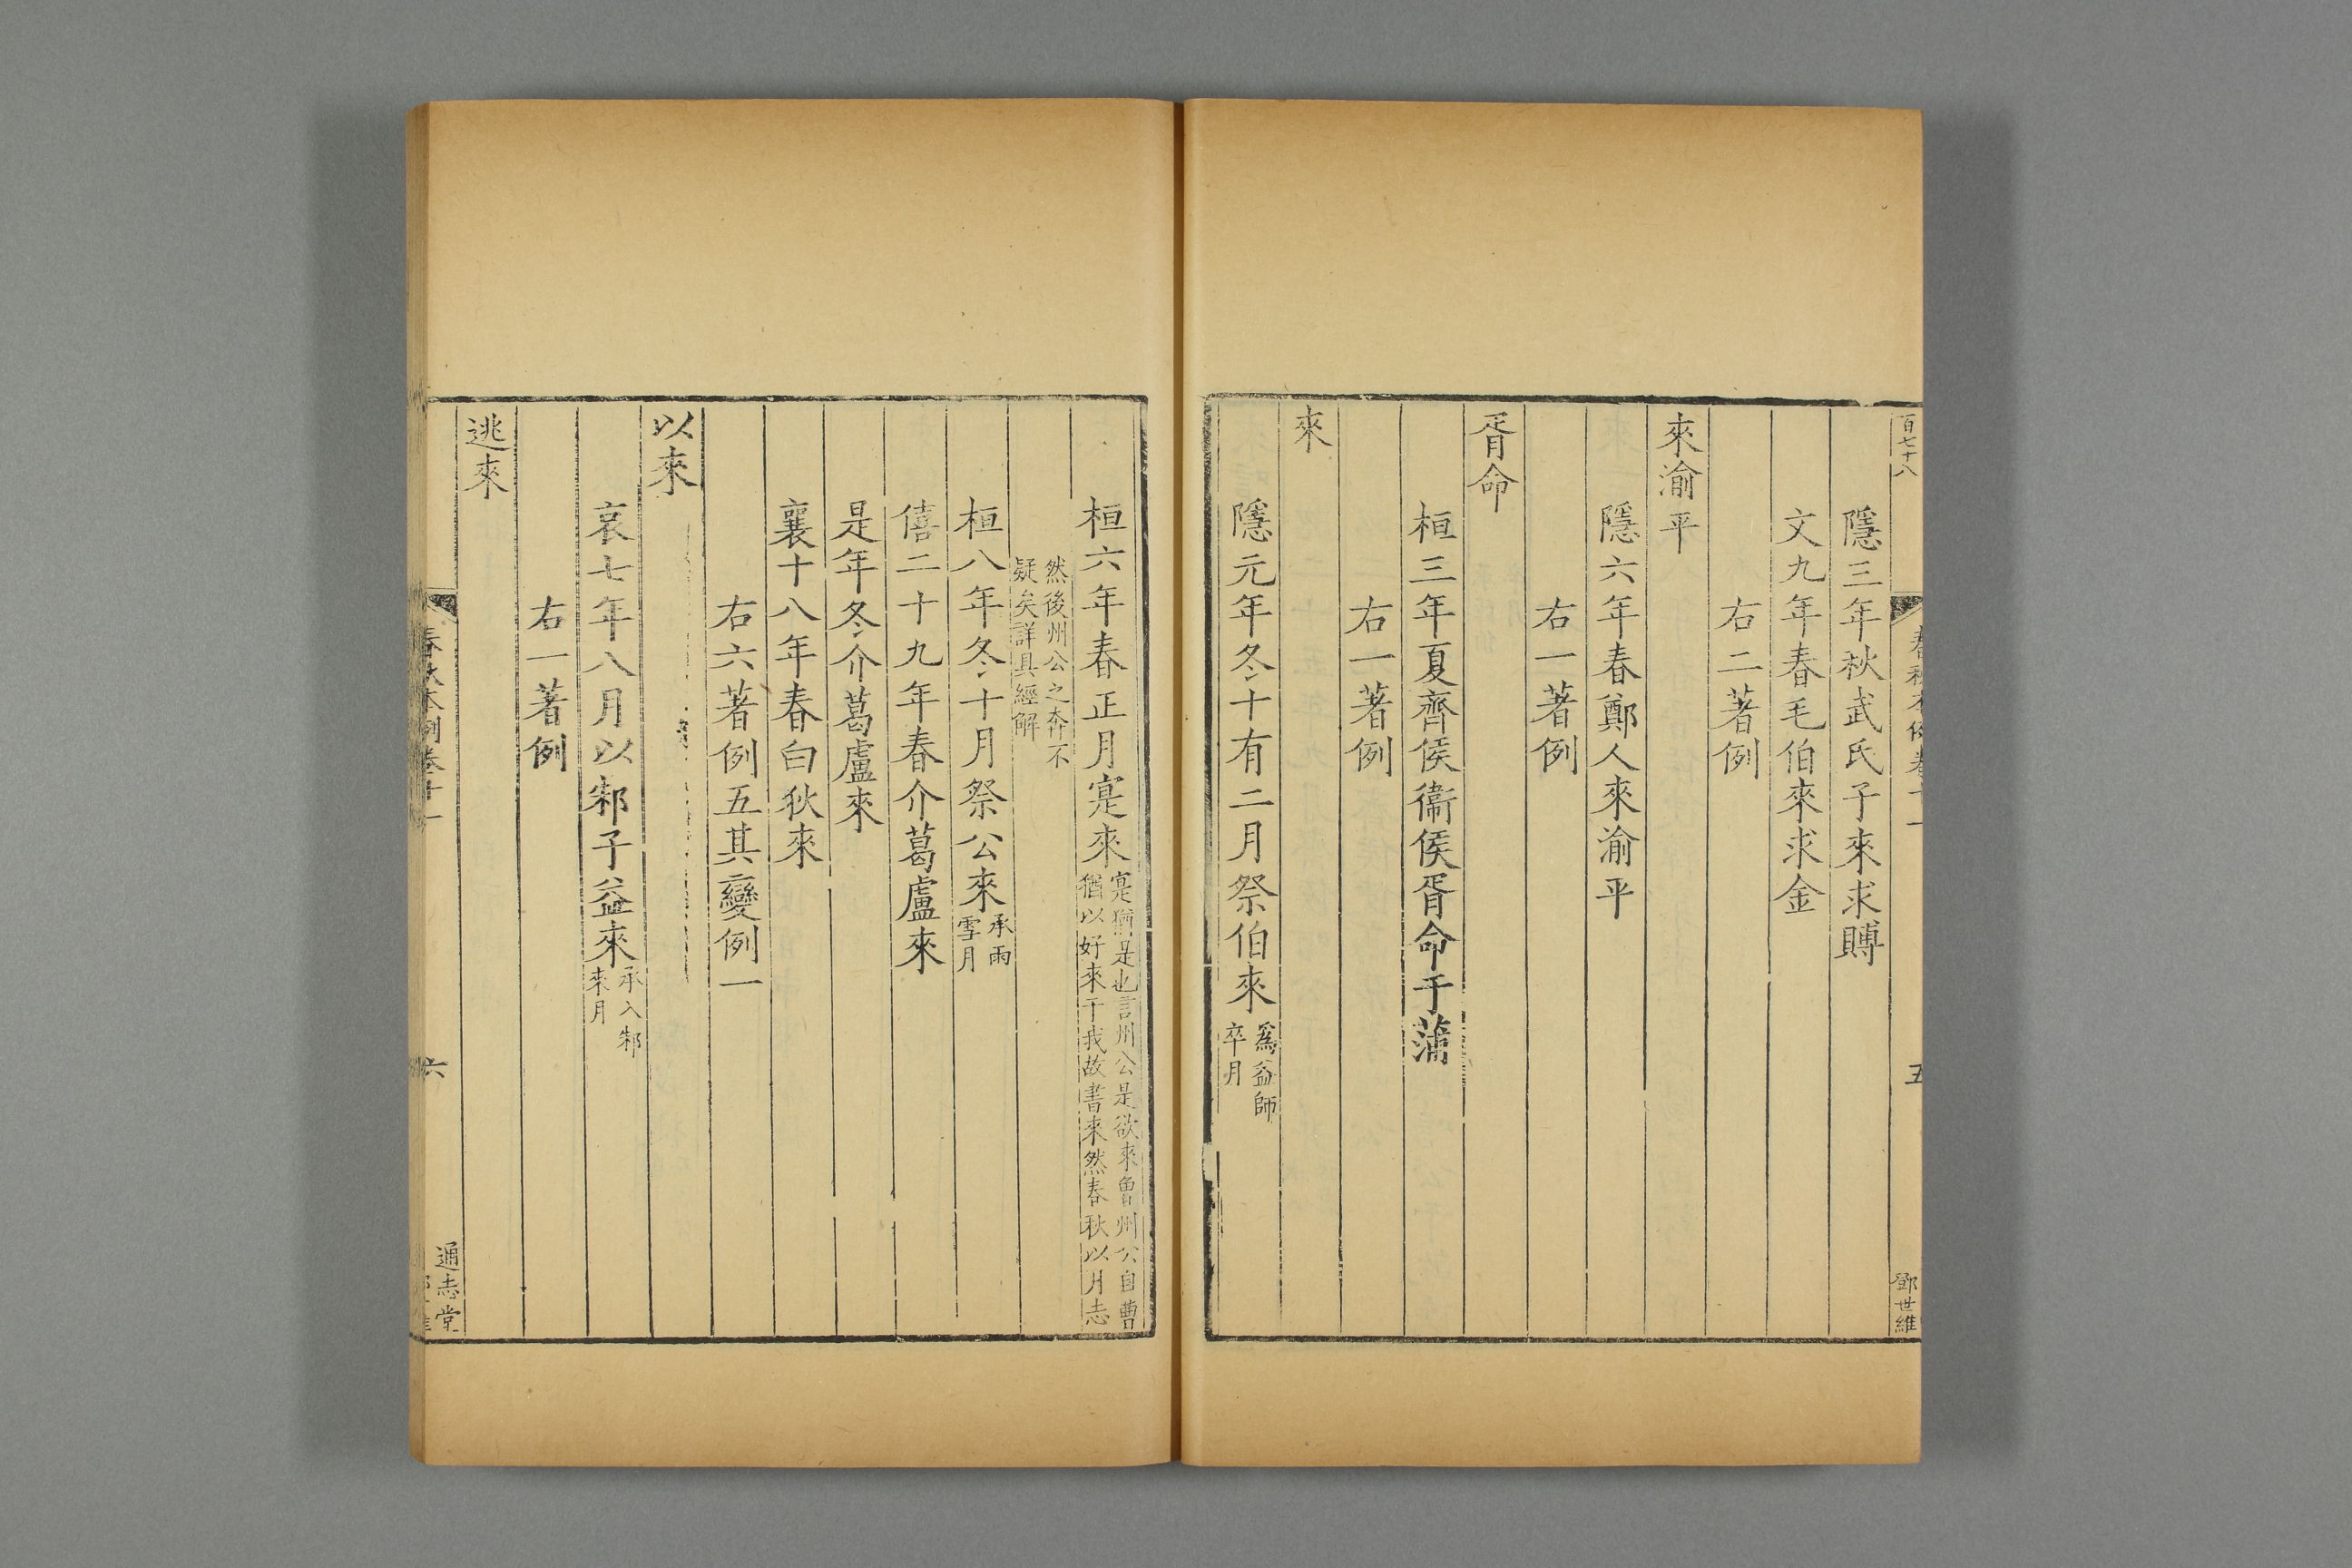 百七十八
春秋本例卷十一
五
鄧世維
隱三年秋武氏子來求賻
文九年春毛伯來求金
右二著例
來渝平
隱六年春鄭人來渝平
右一著例
胥命
桓三年夏齊侯衞侯胥命于蒲
右一著例
來
隱元年冬十有二月祭伯來
爲益師
卒月
桓六年春正月寔來
寔猶是也言州公是欲來魯州公自曹
猶以好來于我故書來然春秋以月志
然後州公之奔不
疑矣詳具經解
桓八年冬十月祭公來
承雨
雪月
僖二十九年春介葛盧來
是年冬介葛盧來
襄十八年春白狄來
右六著例五其變例一
以來
哀七年八月以邾子益來
承入邾
來月
右一著例
逃來
春秋本例卷十一
六
通志堂